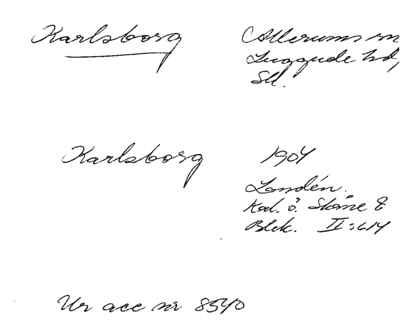 Karlsborg Allerums sn
Luggude hd,
Sk.
Karlsborg 1904
Londén.
Kad. ö. Skåne &
Blek. II:614
Ur acc nr 8540